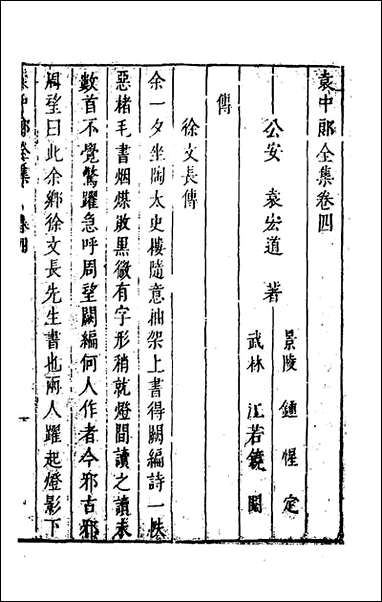 袁中郎全集卷四
公安 袁宏道 著
景陵 鍾惺 定
武林 江若鏡 閱
傳
徐文長傳
余一夕坐陶太史樓隨意抽架上書得闕編詩一帙
惡楮毛書烟煤敗黑微有字形稍就燈間讀之讀未
數首不覺驚躍急呼周望闕編何人作者今邪古邪
周望曰此余鄉徐文長先生書也兩人躍起燈影下
袁中郎全集 卷四
一